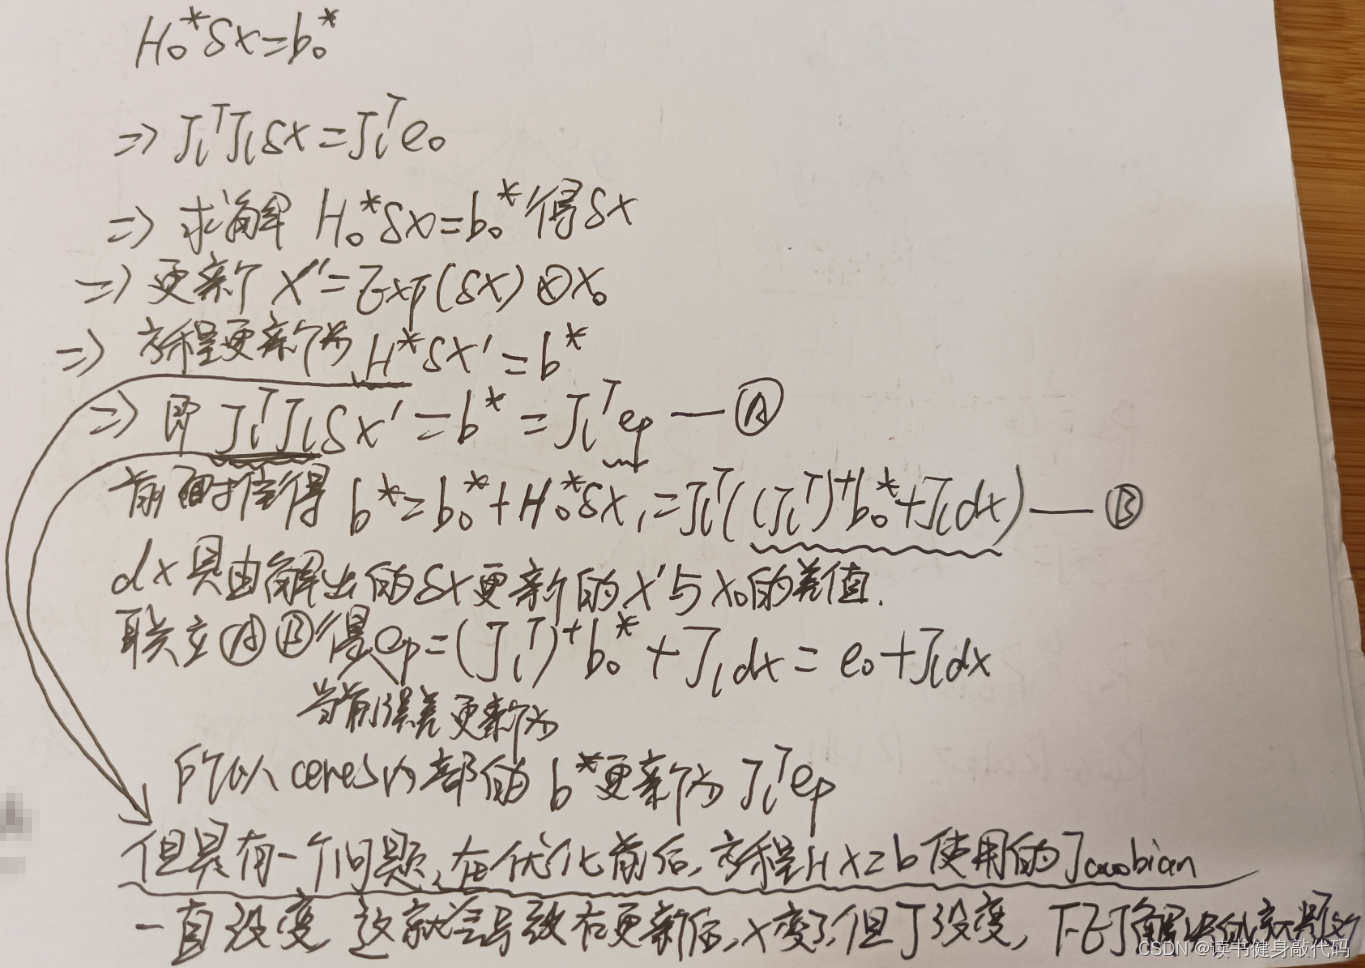 H₀*δx=b₀*
=> Jₗᵀ Jₗ δx = Jₗᵀ e₀
=> 求解 H₀*δx=b₀* 得δx
=> 更新 x'=Exp(δx)⊗x₀
=> 方程更新为 H*δx'=b*
=> 即 Jₗᵀ Jₗ δx' = b* = Jₗᵀ eₚ — Ⓐ
前面 得 b*=b₀*+H₀*δx, = Jₗᵀ((Jₗᵀ)⁺b₀*+Jₗdx) — Ⓑ
dx是由解出的δx更新的x'与x₀的差值.
联立ⒶⒷ得eₚ=(Jₗᵀ)⁺b₀*+Jₗdx = e₀+Jₗdx
当前误差更新为
所以ceres内部的 b*更新为 Jₗᵀeₚ
但是有一个问题,在优化前后,方程Hx=b使用的Jacobian
一直没变,这就会导致在更新后,x变了,但J没变,
CSDN @读书健身敲代码